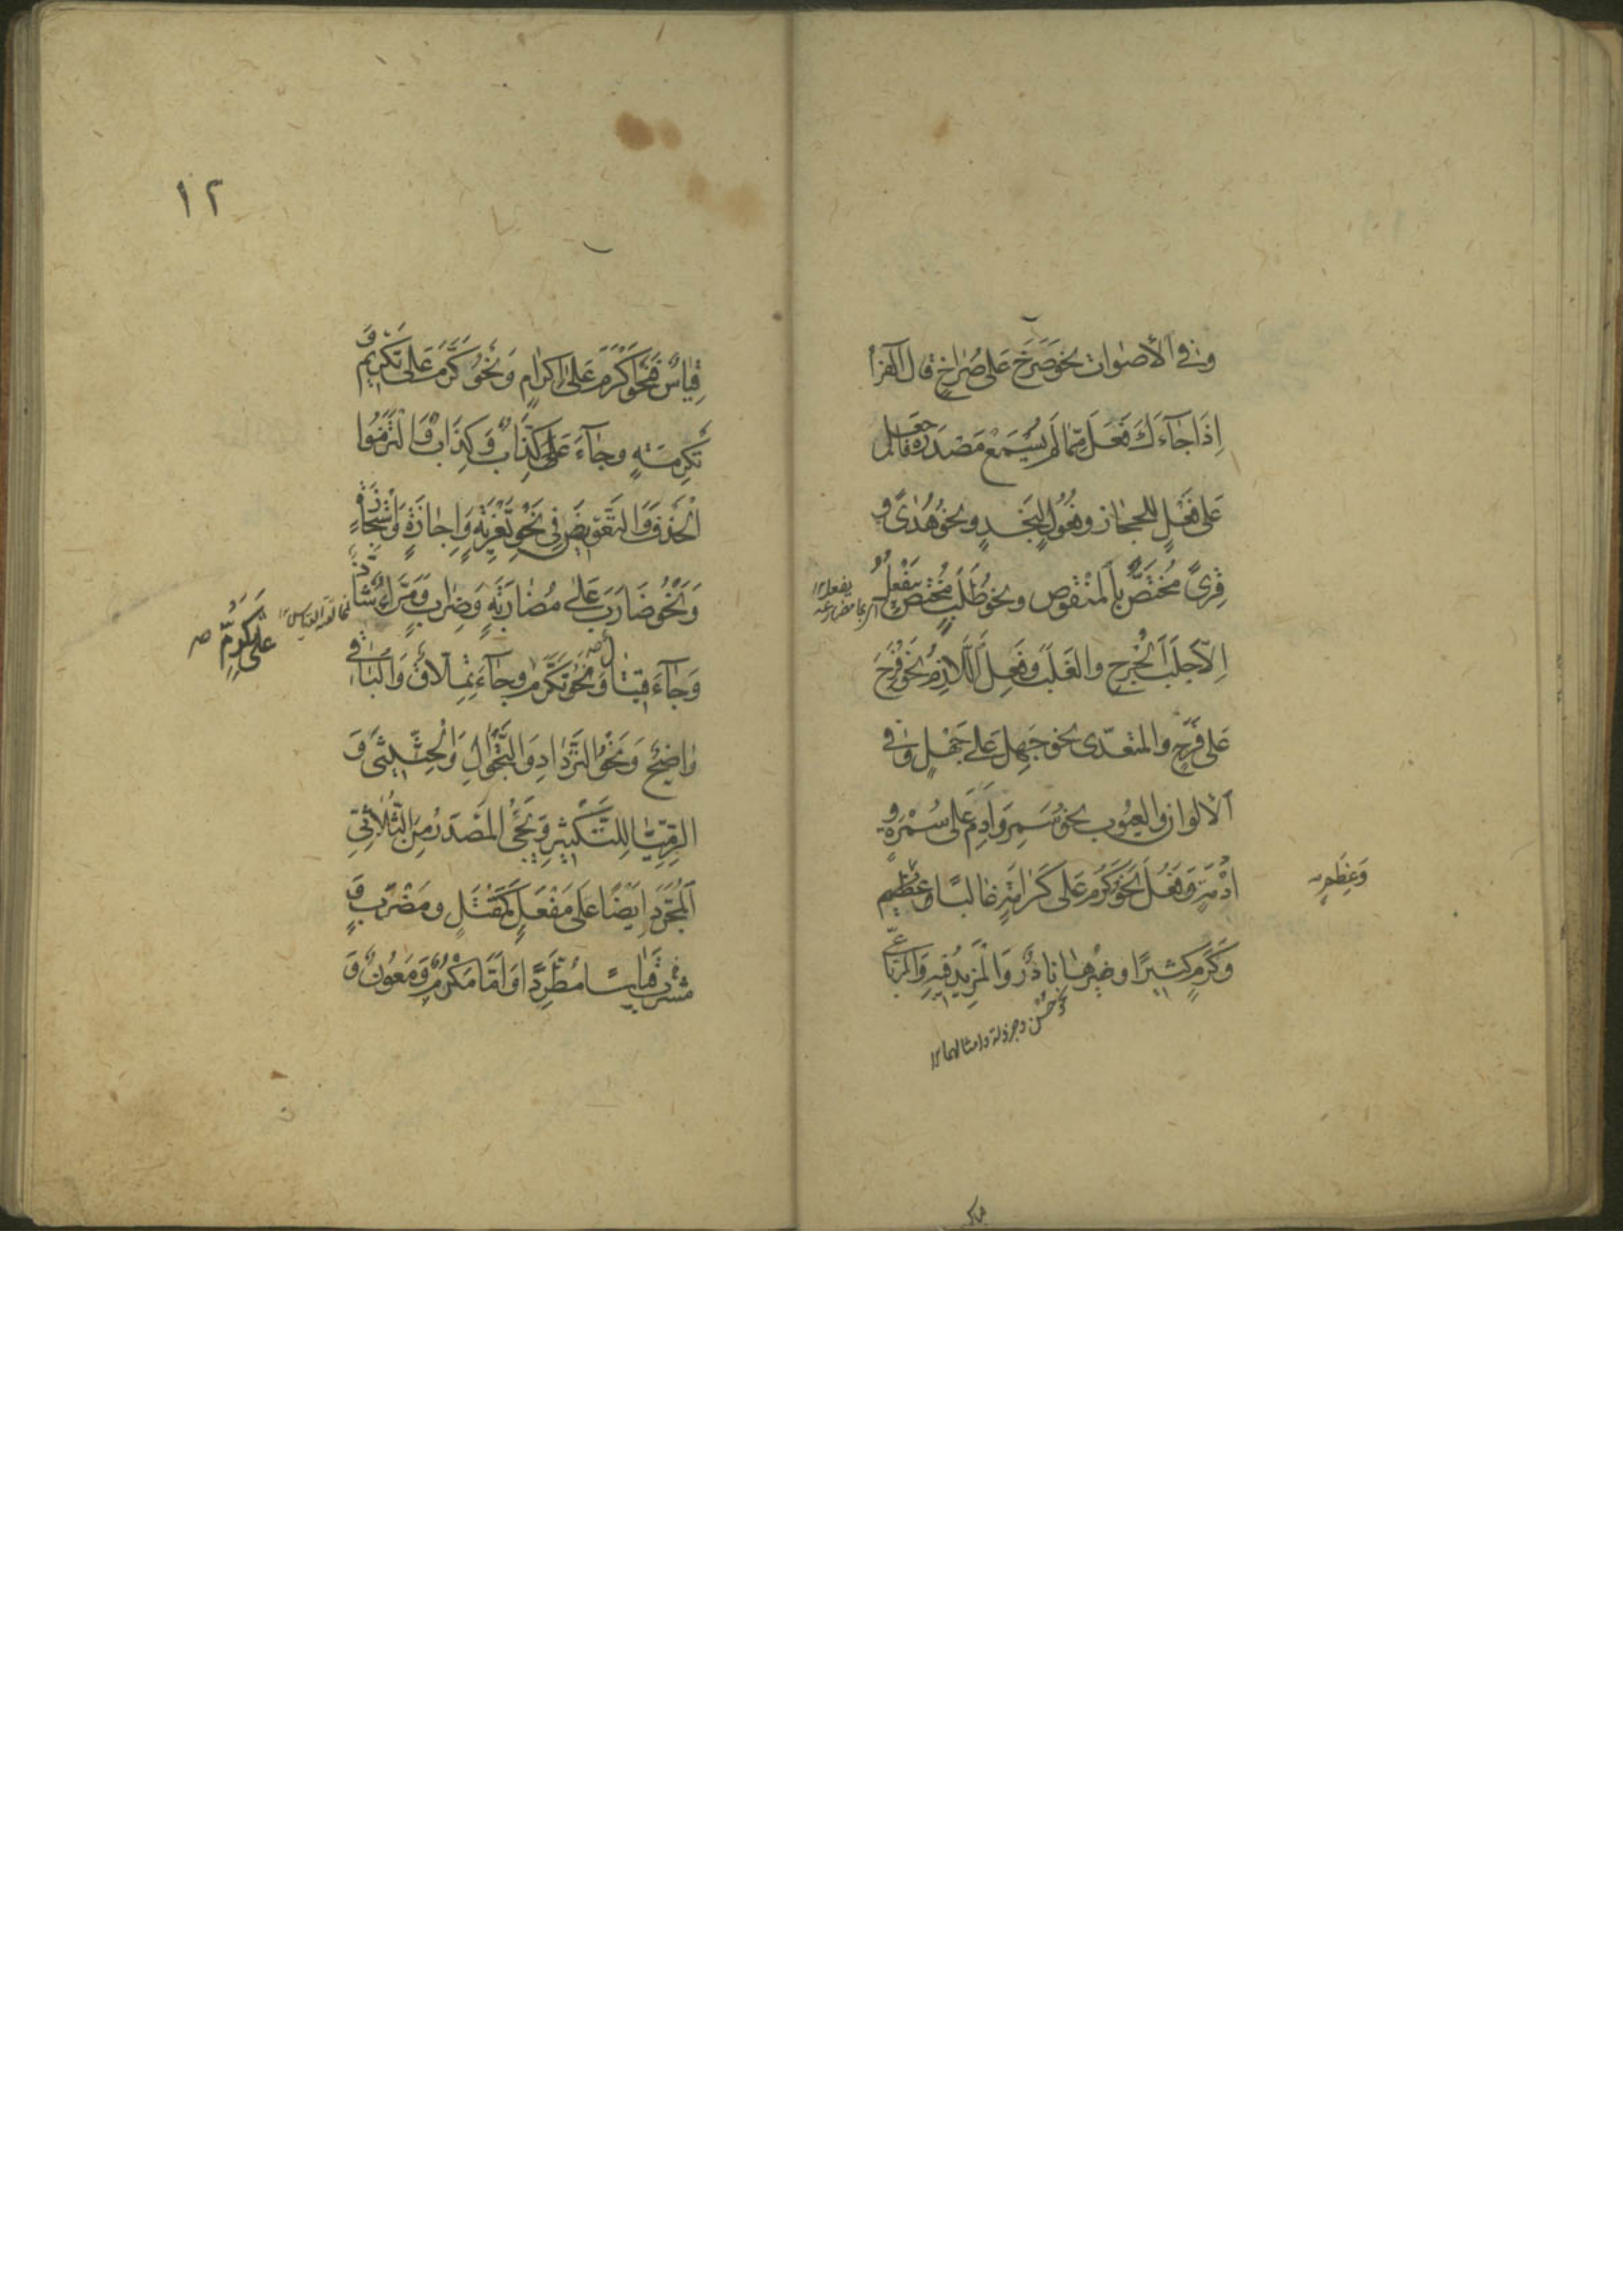 وَفِي الْأَصْوَات نحو صَرَخَ عَلى صُرَاخٍ قال الْفَرّاءُ
اِذَا جَاءَكَ فَعَلَ مِمّا لَمْ يُسْمَعْ مَصْدَرُهُ فَاجْعَلْهُ
عَلى فَعْلٍ لِلحجاز وفُعُولٍ لِنَجْدٍ ونحو هُدًى وَ
قِرًى مُخْتَصٌّ بِالْمَنْقُوصِ ونحو طَلَبٍ مُخْتَصٌّ بِيَفْعُلُ
يفعل
اِلَّا جَلَبَ الْجُرْحِ والْغَلَبَ وَفَعِلَ اللَّازِمُ نَحْوُ فَرِحَ
عَلى فَرَحٍ والمتعَدّى نحو جَهِلَ عَلى جَهْلٍ وَفي
الْأَلْوانِ والْعُيُوبِ نحو سَمِرَ وَاَدِمَ عَلى سُمْرَةٍ وَ
اُدْمَةٍ وَفَعُلَ نَحْوُ كَرُمَ عَلى كَرَامَةٍ غالبًا وَعِظَمٍ
وَعِظَمٍ صح
وَكَرَمٍ كثيرًا وغيْرُهَا نادِرٌ وَالْمَزِيدُ فِيهِ وَالرُّباعِيُّ
نحو حُسْن وجزالة وامثالهما
١٢
قِيَاسٌ فَنَحْوُ اَكْرَمَ عَلَى اِكْرَامٍ وَنَحْوُ كَرَّمَ عَلى تَكْرِيمٍ وَ
تَكْرِمَةٍ وجَاءَ عَلَى كِذَّابٍ وَكِذَابٍ وَالْتَزَمُوا
الْحَذْفَ وَالتَّعْوِيضَ فِي نَحْوِ تَعْزِيَةٍ وَاِجَازَةٍ وَاسْتِجَازَةٍ
وَنَحْوُ ضَارَبَ عَلى مُضَارَبَةٍ وَضِرَابٍ وَمِرَّاءٌ شَاذٌّ
مخالف القياس
وَجَاءَ قِيتَالٌ وَنَحْوُ تَكَرَّمَ وجَاءَ تِمِلَّاقٌ وَالْبَاقِي
عَلى تَكَرُّمٍ صح
وَاضِحٌ وَنَحْوُ التَّرْدَادِ وَالتَّجْوَالِ وَالْحِثِّيثَى وَ
الرِّمِّيَّا لِلتَّكْثِيرِ وَيَجِيءُ الْمَصْدَرُ مِنَ الثُّلَاثِيِّ
الْمُجَرَّدِ اَيْضًا عَلَى مَفْعَلٍ كَمَقْتَلٍ ومَضْرَبٍ وَ
مَشْرَبٍ قِيَاسًا مُطَّرِدًا وَاَمَّا مَكْرُمٌ وَمَعُونٌ وَ